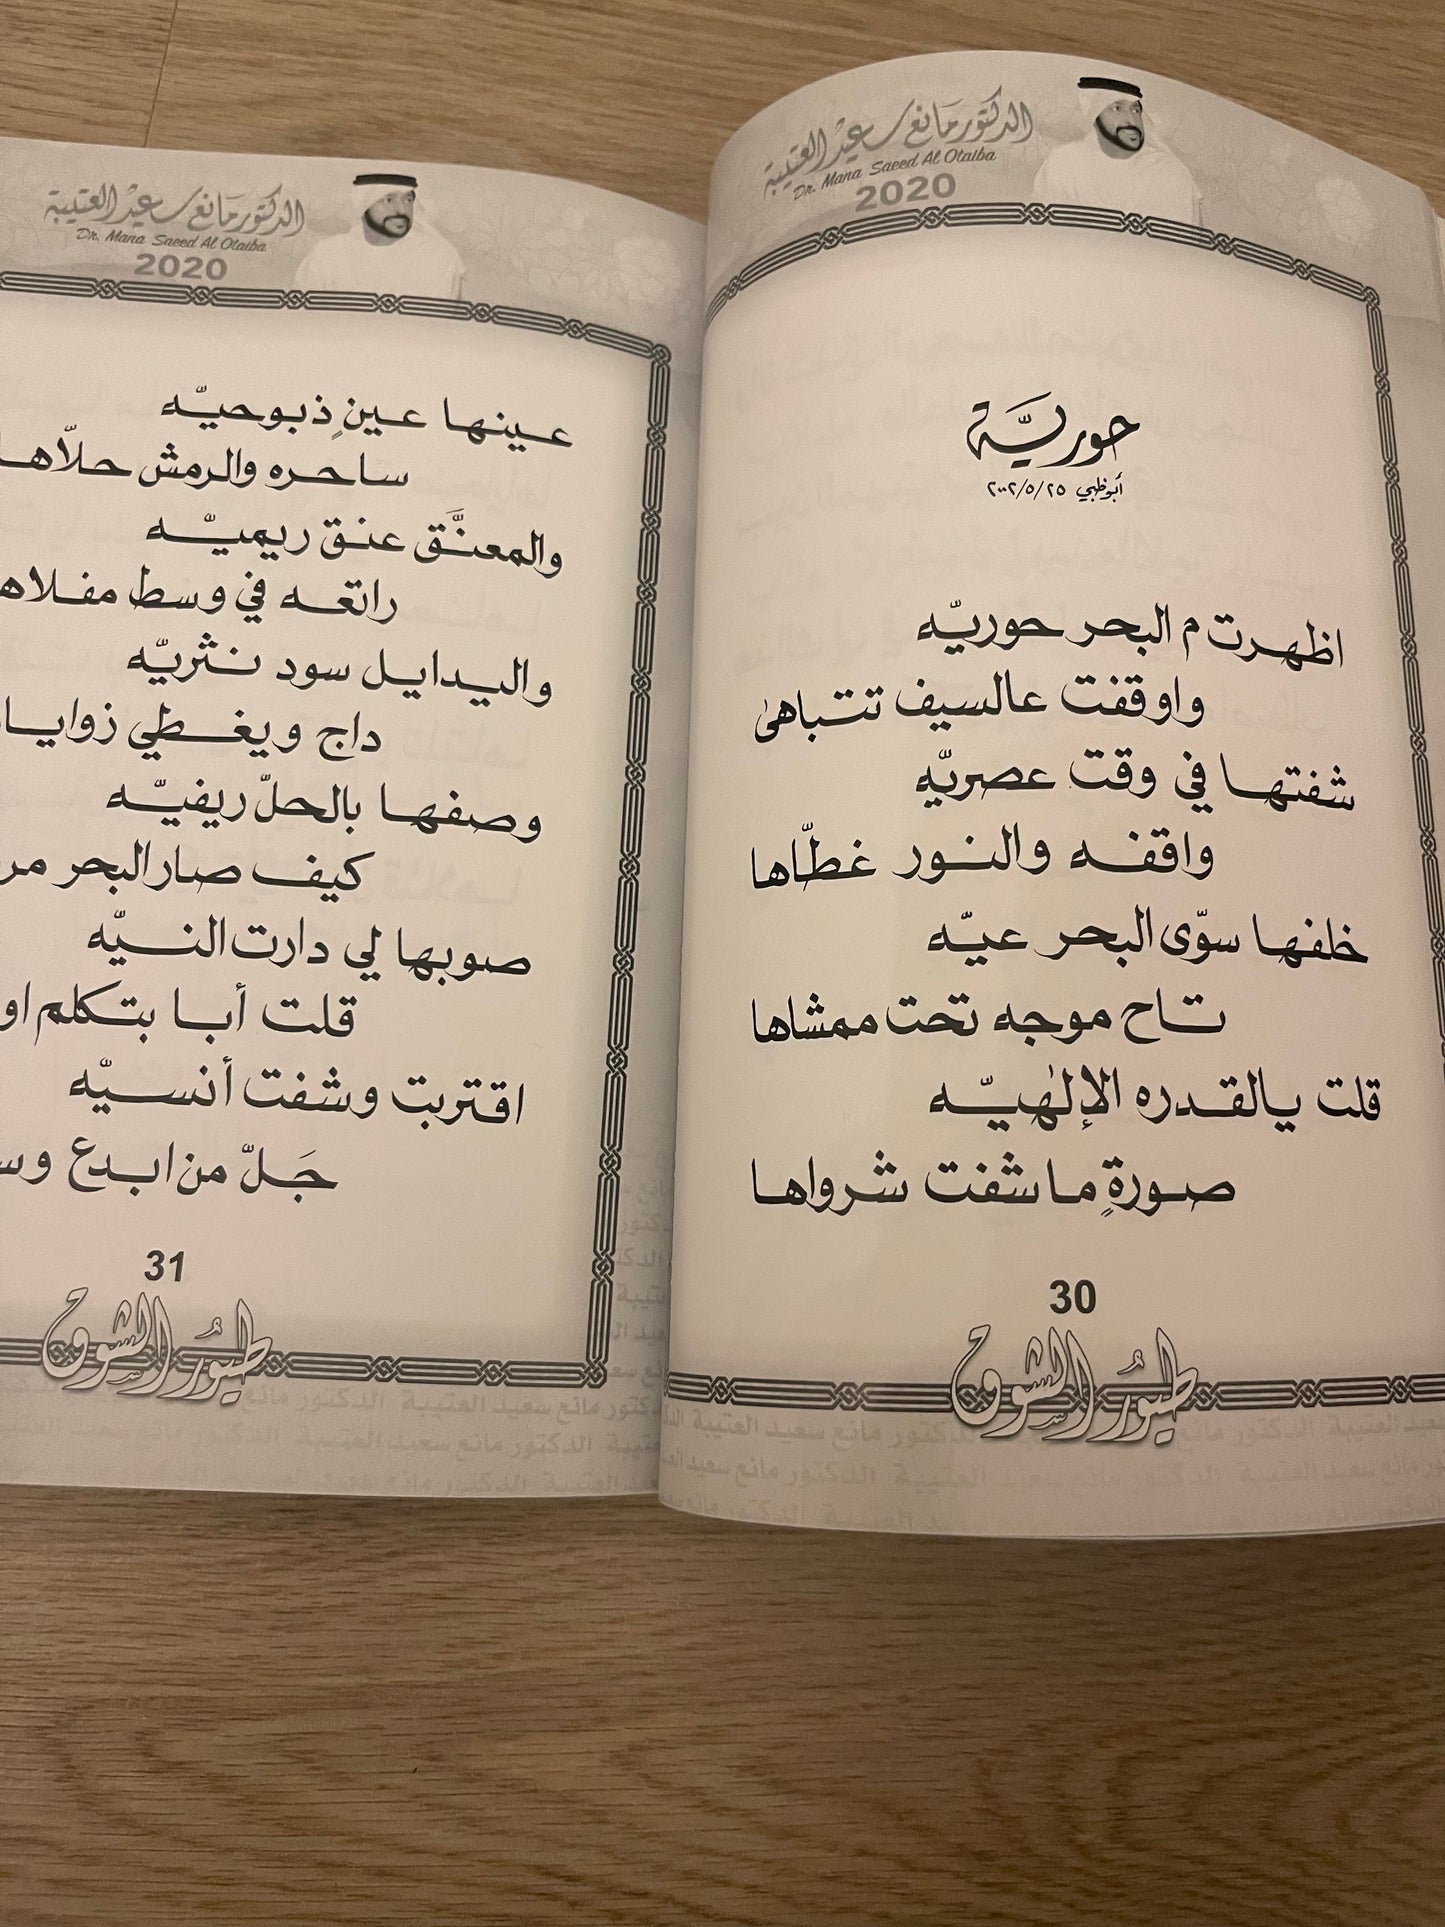 الدكتور مانع سعيد العتيبة
Dr. Mana Saeed Al Otaiba
2020
حوريّة
أبوظبي ٢٠٠٢/٥/٢٥
اظهرت م البحر حوريّه
واوقفت عالسيف تتباهىٰ
شفتها في وقت عصريّه
واقفه والنور غطّاها
خلفها سوّى البحر عيّه
تاح موجه تحت ممشاها
قلت يالقدره الإلٰهيّه
صورةٍ ما شفت شرواها
30
طيور الشوق
الدكتور مانع سعيد العتيبة
Dr. Mana Saeed Al Otaiba
2020
عينها عينٍ ذبوحيّه
ساحره والرمش حلّاها
والمعنَّق عنق ريميّه
راتعه في وسط مفلاها
واليدايل سود نثريّه
داج ويغطي
وصفها بالحلّ ريفيّه
كيف صار البحر
صوبها لي دارت النيّه
قلت أبا بتكلم
اقتربت وشفت أنسيّه
جَلّ من ابدع
31
طيور الشوق